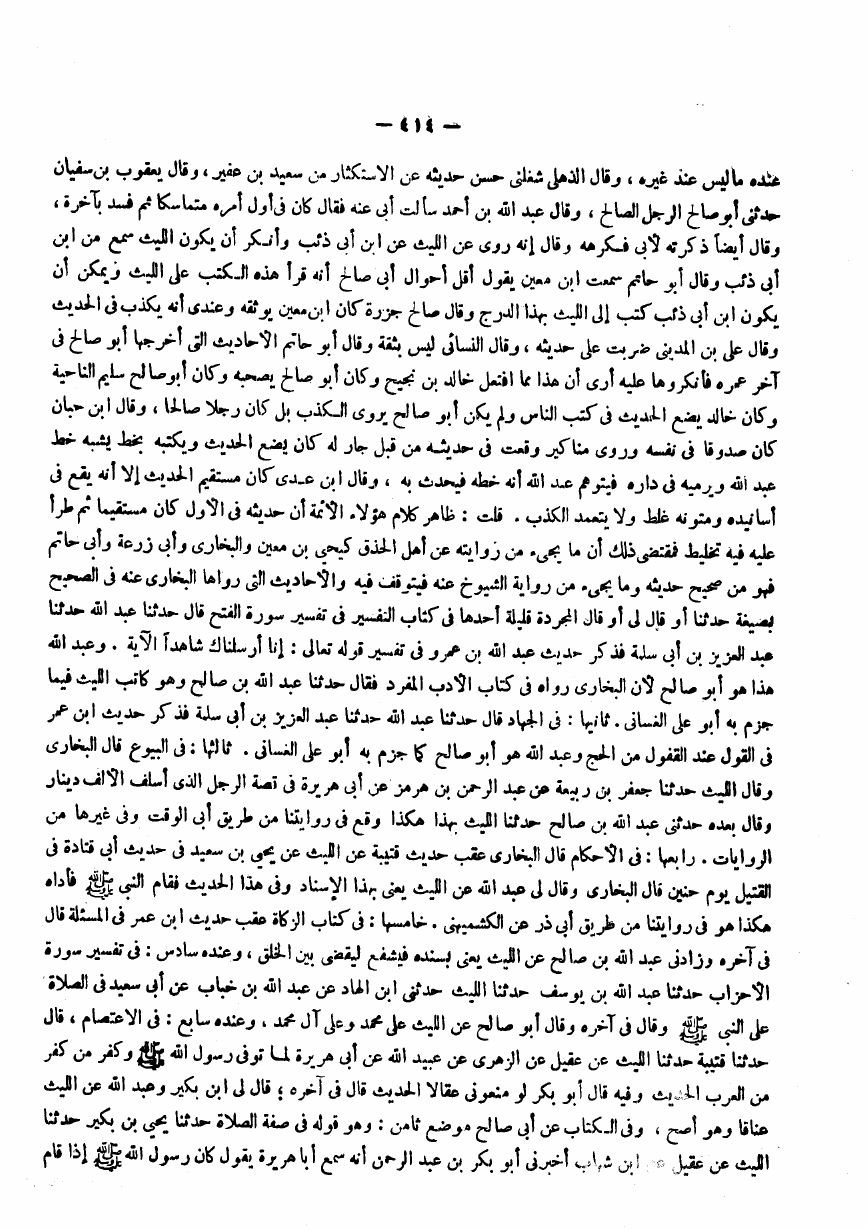 — ٤١٤ —
عنده ماليس عند غيره ، وقال الذهلى شغلنى حسن حديثه عن الاستكثار من سعيد بن عفير ، وقال يعقوب بن سفيان
حدثنى أبو صالح الرجل الصالح ، وقال عبد الله بن أحمد سألت أبى عنه فقال كان فى أول أمره متماسكا ثم فسد بآخرة ،
وقال أيضاً ذكرته لأبى فكرهه وقال إنه روى عن الليث عن ابن أبى ذئب وأنكر أن يكون الليث سمع من ابن
أبى ذئب وقال أبو حاتم سمعت ابن معين يقول أقل أحوال أبى صالح أنه قرأ هذه الكتب على الليث ويمكن أن
يكون ابن أبى ذئب كتب إلى الليث بهذا الدرج وقال صالح جزرة كان ابن معين يوثقه وعندى أنه يكذب فى الحديث
وقال على بن المدينى ضربت على حديثه ، وقال النسائى ليس بثقة وقال أبو حاتم الأحاديث التى أخرجها أبو صالح فى
آخر عمره فأنكروها عليه أرى أن هذا مما افتعل خالد بن نجيح وكان أبو صالح يصحبه وكان أبو صالح سليم الناحية
وكان خالد يضع الحديث فى كتب الناس ولم يكن أبو صالح يروى الكذب بل كان رجلا صالحا ، وقال ابن حبان
كان صدوقا فى نفسه وروى مناكير وقعت فى حديثه من قبل جار له كان يضع الحديث ويكتبه بخط يشبه خط
عبد الله ويرميه فى داره فيتوهم عبد الله أنه خطه فيحدث به ، وقال ابن عدى كان مستقيم الحديث إلا أنه يقع فى
أسانيده ومتونه غلط ولا يتعمد الكذب . قلت : ظاهر كلام هؤلاء الأئمة أن حديثه فى الأول كان مستقيما ثم طرأ
عليه فيه تخليط فمقتضى ذلك أن ما يجىء من روايته عن أهل الحذق كيحي بن معين والبخارى وأبى زرعة وأبى حاتم
فهو من صحيح حديثه وما يجىء من رواية الشيوخ عنه فيتوقف فيه والأحاديث التى رواها البخارى عنه فى الصحيح
بصيغة حدثنا أو قال لى أو قال المجردة قليلة أحدها فى كتاب التفسير فى تفسير سورة الفتح قال حدثنا عبد الله حدثنا
عبد العزيز بن أبى سلمة فذكر حديث عبد الله بن عمرو فى تفسير قوله تعالى : إنا أرسلناك شاهداً الآية . وعبد الله
هذا هو أبو صالح لأن البخارى رواه فى كتاب الأدب المفرد فقال حدثنا عبد الله بن صالح وهو كاتب الليث فيما
جزم به أبو على الغسانى . ثانيها : فى الجهاد قال حدثنا عبد الله حدثنا عبد العزيز بن أبى سلمة فذكر حديث ابن عمر
فى القول عند القفول من الحج وعبد الله هو أبو صالح كما جزم به أبو على الغسانى . ثالثها : فى البيوع قال البخارى
وقال الليث حدثنا جعفر بن ربيعة عن عبد الرحمن بن هرمز عن أبى هريرة فى قصة الرجل الذى أسلف الألف دينار
وقال بعده حدثنى عبد الله بن صالح حدثنا الليث بهذا هكذا وقع فى روايتنا من طريق أبى الوقت وفى غيرها من
الروايات . رابعها : فى الأحكام قال البخارى عقب حديث قتيبة عن الليث عن يحي بن سعيد فى حديث أبى قتادة فى
القتيل يوم حنين قال البخارى وقال لى عبد الله عن الليث يعنى بهذا الإسناد وفى هذا الحديث فقام النبى ﷺ فأداه
هكذا هو فى روايتنا من طريق أبى ذر عن الكشميهنى . خامسها : فى كتاب الزكاة عقب حديث ابن عمر فى المسئلة قال
فى آخره وزادنى عبد الله بن صالح عن الليث يعنى بسنده فيشفع ليقضى بين الخلق ، وعنده سادس : فى تفسير سورة
الأحزاب حدثنا عبد الله بن يوسف حدثنا الليث حدثنى ابن الهاد عن عبد الله بن خباب عن أبى سعيد فى الصلاة
على النبى ﷺ وقال فى آخره وقال أبو صالح عن الليث على محمد وعلى آل محمد . وعنده سابع : فى الاعتصام ، قال
حدثنا قتيبة حدثنا الليث عن عقيل عن الزهرى عن عبيد الله عن أبى هريرة لما توفى رسول الله ﷺ وكفر من كفر
من العرب الحديث وفيه قال أبو بكر لو منعونى عقالا الحديث قال فى آخره ؛ قال لى ابن بكير وعبد الله عن الليث
عناقا وهو أصح ، وفى الكتاب عن أبى صالح موضع ثامن : وهو قوله فى صفة الصلاة حدثنا يحي بن بكير حدثنا
الليث عن عقيل عن ابن شهاب أخبرنى أبو بكر بن عبد الرحمن أنه سمع أبا هريرة يقول كان رسول الله ﷺ إذا قام